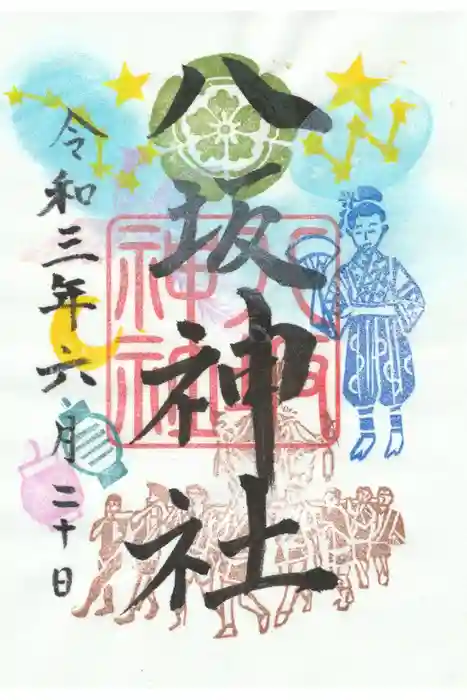 八坂神社
令和三年六月二十日
八坂
神社